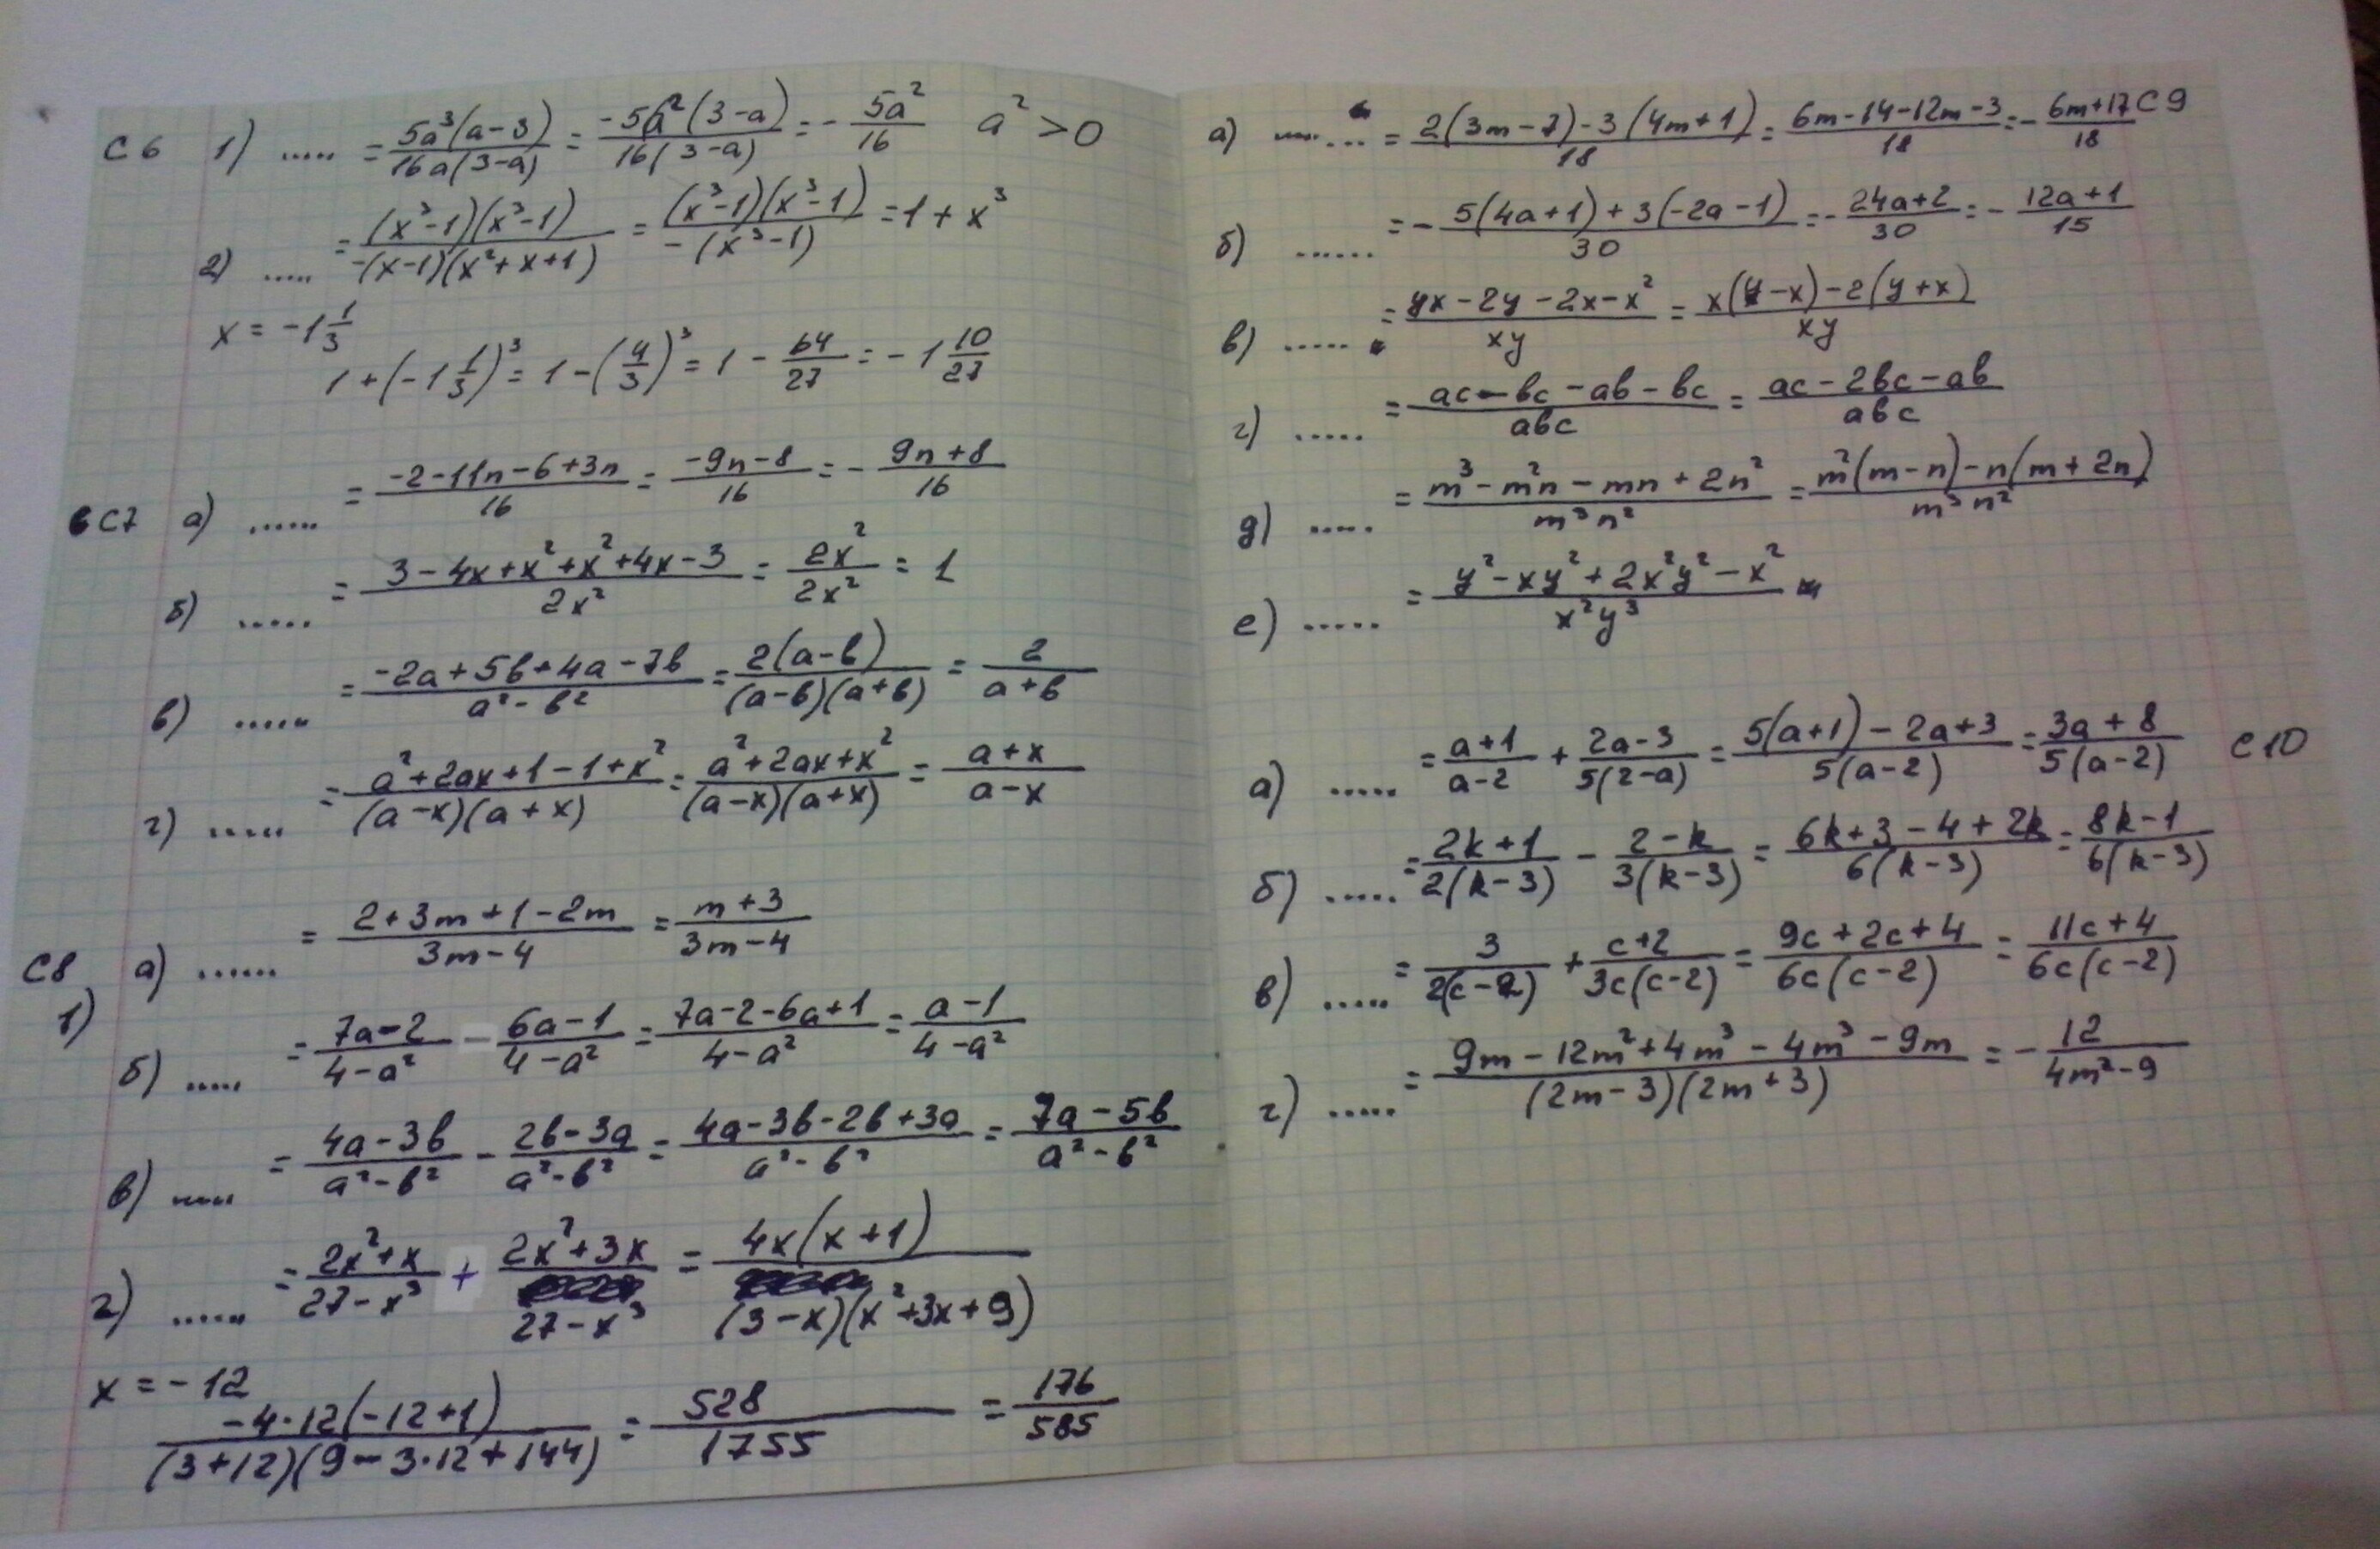 С6 1) ..... = 5a³(a-3)/16a(3-a) = -5a²(3-a)/16(3-a) = - 5a²/16 a² > 0
2) ..... = (x³-1)(x³-1)/-(x-1)(x²+x+1) = (x³-1)(x³-1)/-(x³-1) = 1 + x³
x = -1 1/3
1 + (-1 1/3)³ = 1 - (4/3)³ = 1 - 64/27 = - 1 10/27
С7 а) ...... = -2-11n-6+3n/16 = -9n-8/16 = - 9n+8/16
б) ..... = 3-4x+x²+x²+4x-3/2x² = 2x²/2x² = 1
в) ...... = -2a+5b+4a-7b/a²-b² = 2(a-b)/(a-b)(a+b) = 2/a+b
г) ...... = a²+2ax+1-1+x²/(a-x)(a+x) = a²+2ax+x²/(a-x)(a+x) = a+x/a-x
С8 а) ...... = 2+3m+1-2m/3m-4 = m+3/3m-4
1)
б) ..... = 7a-2/4-a² - 6a-1/4-a² = 7a-2-6a+1/4-a² = a-1/4-a²
в) ..... = 4a-3b/a²-b² - 2b-3a/a²-b² = 4a-3b-2b+3a/a²-b² = 7a-5b/a²-b²
г) ...... = 2x²+x/27-x³ + 2x²+3x/27-x³ = 4x(x+1)/(3-x)(x²+3x+9)
x = -12
-4·12(-12+1)/(3+12)(9-3·12+144) = 528/1755 = 176/585
а) ..... = 2(3m-7)-3(4m+1)/18 = 6m-14-12m-3/18 = - 6m+17/18 С9
б) ...... = - 5(4a+1)+3(-2a-1)/30 = - 24a+2/30 = - 12a+1/15
в) ..... = yx-2y-2x-x²/xy = x(y-x)-2(y+x)/xy
г) ..... = ac-bc-ab-bc/abc = ac-2bc-ab/abc
д) ..... = m³-m²n-mn+2n²/m³n² = m²(m-n)-n(m+2n)/m³n²
е) ..... = y²-xy²+2x²y²-x²/x²y³
а) ..... = a+1/a-2 + 2a-3/5(2-a) = 5(a+1)-2a+3/5(a-2) = 3a+8/5(a-2) С10
б) ..... = 2k+1/2(k-3) - 2-k/3(k-3) = 6k+3-4+2k/6(k-3) = 8k-1/6(k-3)
в) ..... = 3/2(c-2) + c+2/3c(c-2) = 9c+2c+4/6c(c-2) = 11c+4/6c(c-2)
г) ..... = 9m-12m²+4m³-4m³-9m/(2m-3)(2m+3) = - 12/4m²-9